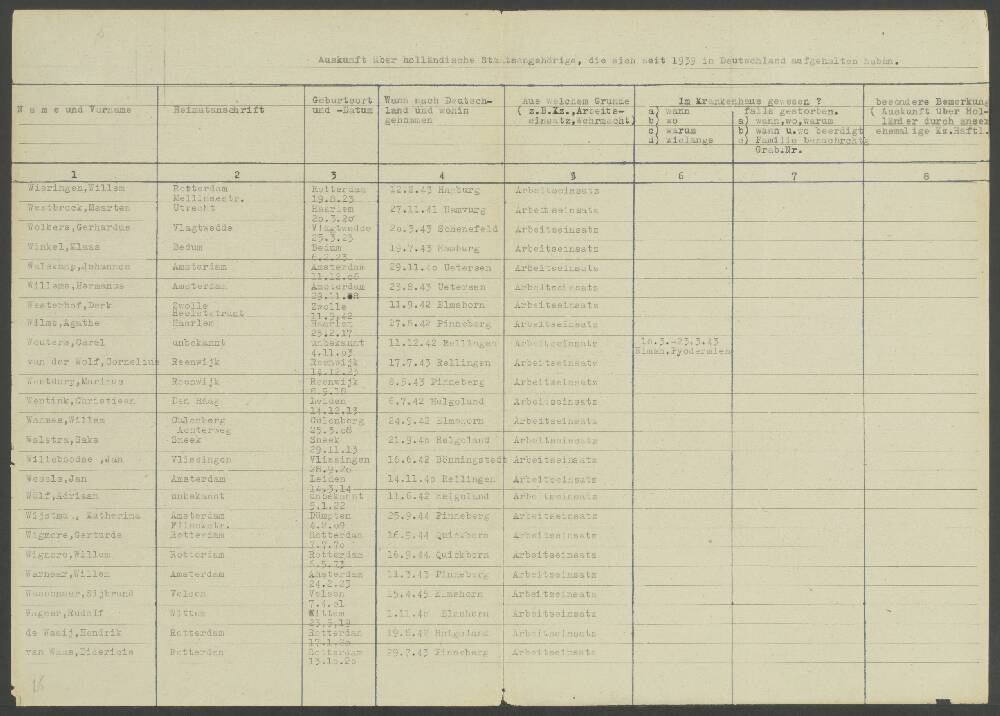 Auskunft über holländische Staatsangehörige, die sich seit 1939 in Deutschland aufgehalten haben.
Name und Vorname Heimatanschrift Geburtsort und -Datum Wann nach Deutschland und wohin gekommen Aus welchem Grunde (z.B.Kz.,Arbeitseinsatz,Wehrmacht) Im Krankenhaus gewesen ? a) wann b) wo c) warum d) wielange falls gestorben. a) wann,wo,warum b) wann u.wo beerdigt c) Familie benachrchtg Grab.Nr. besondere Bemerkung ( Auskunft über Holländer durch
ehemalige Kz.Häftl.
1 2 3 4 5 6 7 8
Wieringen,Willem Rotterdam Rotterdam 12.8.43 Hamburg Arbeitseinsatz
19.8.23
Westbrock,Maarten Utrecht Haarlem 27.11.41 Hamvurg Arbeitseinsatz
20.3.20
Wolkers,Gerhardus Vlagtwedde Vlagtwedde 20.3.43 Schenefeld Arbeitseinsatz
25.3.23
Winkel,Klaas Bedum Bedum 19.7.43 Hamburg Arbeitseinsatz
6.2.23
Johannes Amsterdam Amsterdam 29.11.40 Uetersen Arbeitseinsatz
11.12.06
Willems,Hermanus Amsterdam Amsterdam 23.8.43 Uetersen Arbeitseinsatz
29.11.
Westerhof,Derk Zwolle Zwolle 11.9.42 Elmshorn Arbeitseinsatz
11.9.42
Wilms,Agathe Haarlem Haarlem 27.8.42 Pinneberg Arbeitseinsatz
25.2.17
Wouters,Carel unbekannt unbekannt 11.12.42 Rellingen Arbeitseinsatz 10.3.-23.3.43
4.11.03
van der Wolf,Cornelius Reenwijk Reenwijk 17.7.43 Rellingen Arbeitseinsatz
14.12.23
Marinus Reenwijk Reenwijk 8.5.43 Pinneberg Arbeitseinsatz
6.9.18
Wentink,Christiaan Den Haag Leiden 6.7.42 Helgoland Arbeitseinsatz
14.12.13
Willem Culenberg Culenborg 24.9.42 Elmshorn Arbeitseinsatz
Achterweg 25.3.08
Walstra,Saks Sneek Sneek 21.9.40 Helgoland Arbeitseinsatz
29.11.13
Willeboodse ,Jan Vlissingen Vlissingen 16.6.42 Bönningstedt Arbeitseinsatz
28.9.20
Wessels,Jan Amsterdam Leiden 14.11.40 Rellingen Arbeitseinsatz
14.3.14
Wolf,Adriaan unbekannt unbekannt 11.6.42 Helgoland Arbeitseinsatz
5.1.22
Katharina Amsterdam Dümpten 25.9.44 Pinneberg Arbeitseinsatz
Flinckstr. 4.8.09
Wignore,Gerturde Rotterdam Rotterdam 16.9.44 Quickborn Arbeitseinsatz
7.7.70
Wignore,Willem Rotterdam Rotterdam 16.9.44 Quickborn Arbeitseinsatz
6.5.73
Warnaar,Willem Amsterdam Amsterdam 11.3.43 Pinneberg Arbeitseinsatz
24.2.23
Velsen Velsen 15.4.43 Elmshorn Arbeitseinsatz
7.4.21
Wagner,Rudolf Wittem Wittem 1.11.40 Elmhorn Arbeitseinsatz
23.3.19
de Waaij,Hendrik Rotterdam Rotterdam 19.6.42 Helgoland Arbeitseinsatz
17.1.20
van Waas,Didericis Rotterdam Rotterdam 29.7.43 Pinneberg Arbeitseinsatz
13.10.20
16